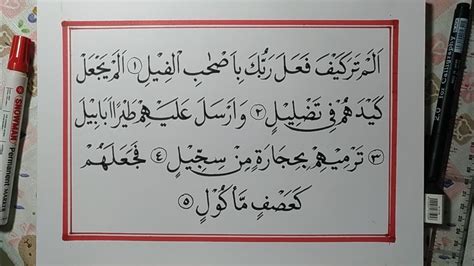 اَلَمْ تَرَكَيْفَ فَعَلَ رَبُّكَ بِاَصْحٰبِ الْفِيْلِ ١ اَلَمْ يَجْعَلْ
كَيْدَهُمْ فِيْ تَضْلِيْلٍ ٢ وَاَرْسَلَ عَلَيْهِمْ طَيْرًا اَبَابِيْلَ
٣ تَرْمِيْهِمْ بِحِجَارَةٍ مِنْ سِجِّيْلٍ ٤ فَجَعَلَهُمْ
كَعَصْفٍ مَّأْكُوْلٍ ٥
SNOWMAN
Permanent